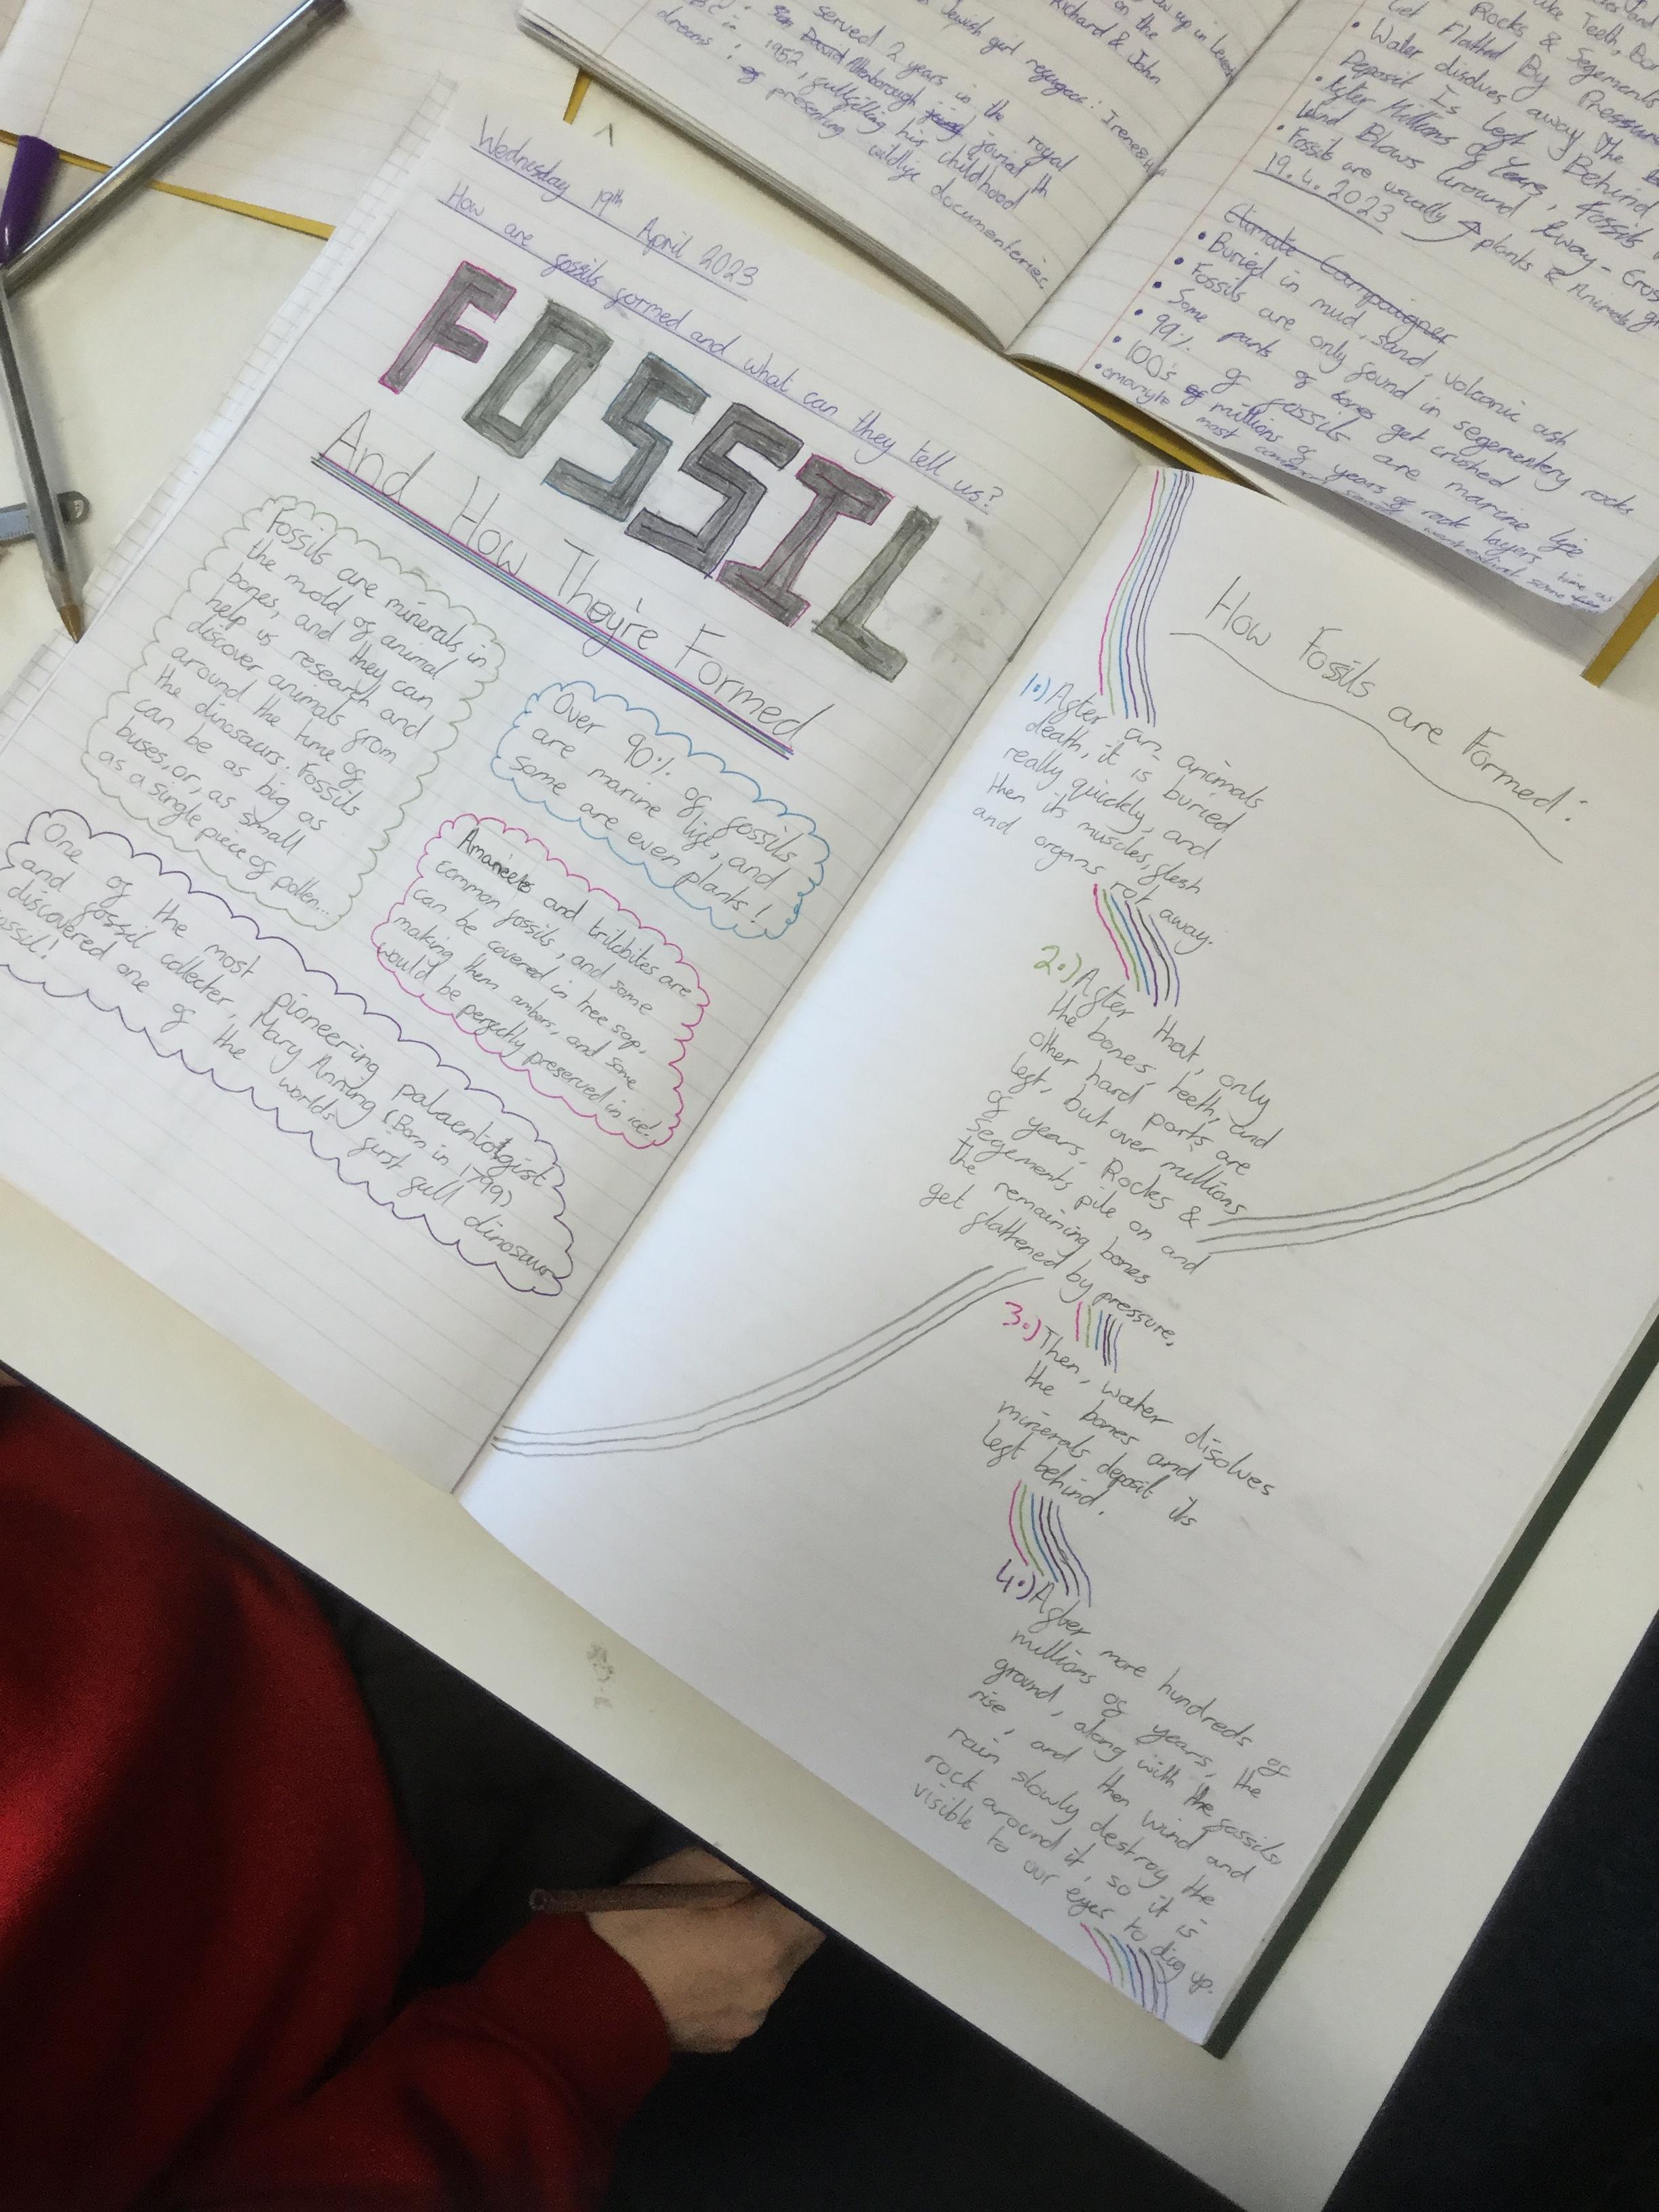 Wednesday 19th April 2023
How are fossils formed and what can they tell us?
FOSSIL
And How They're Formed
Fossils are minerals, in
the mold of animal
bones, and they can
help us research and
discover animals from
around the time of
the dinosaurs. Fossils
can be as big as
buses, or, as small
as a single piece of pollen...
Over 90% of fossils
are marine life, and
some are even plants!
and trilobites are
common fossils, and some
can be covered in tree sap,
making them ambers, and some
would be perfectly preserved in ice!
One of the most pioneering palaentologist
and fossil collecter, Mary Anning (Born in 1799)
discovered one of the worlds first full dinosaur
fossil!
How Fossils are Formed:
1.) After an animals
death, it is buried
really quickly, and
then its muscles, flesh
and organs rot away.
2.) After that, only
the bones, teeth, and
other hard parts are
left, but over millions
of years, Rocks &
segements pile on and
the remaining bones
get flattened by pressure.
3.) Then, water disolves
the bones and
minerals deposit its
left behind.
4.) After more hundreds of
millions of years, the
ground, along with the fossils,
rise, and then wind and
rain slowly destroy the
rock around it, so it is
visible to our eyes to dig up.
Jewish girl refugees: Irene &
served 2 years in the royal
David Attenborough joined th
BBC in 1952, fullfilling his childhood
dreams of presenting wildlife documenteries
on the
Richard & John
like Teeth, Bon
Rocks & Segements
Get Flatted By Pressure
• Water disolves away the
Deposit Is Left Behind
• After Millions of Years, Fossils
Wind Blows Ground Away - Eros
• Fossils are usually plants & Animals
19.4.2023
Climate Campaigner
• Buried in mud, sand, volcanic ash
• Fossils are only found in segementery rocks
• Some parts of bones get crushed
• 99% of fossils are marine life
• 100's of millions of years of rock layers
most common